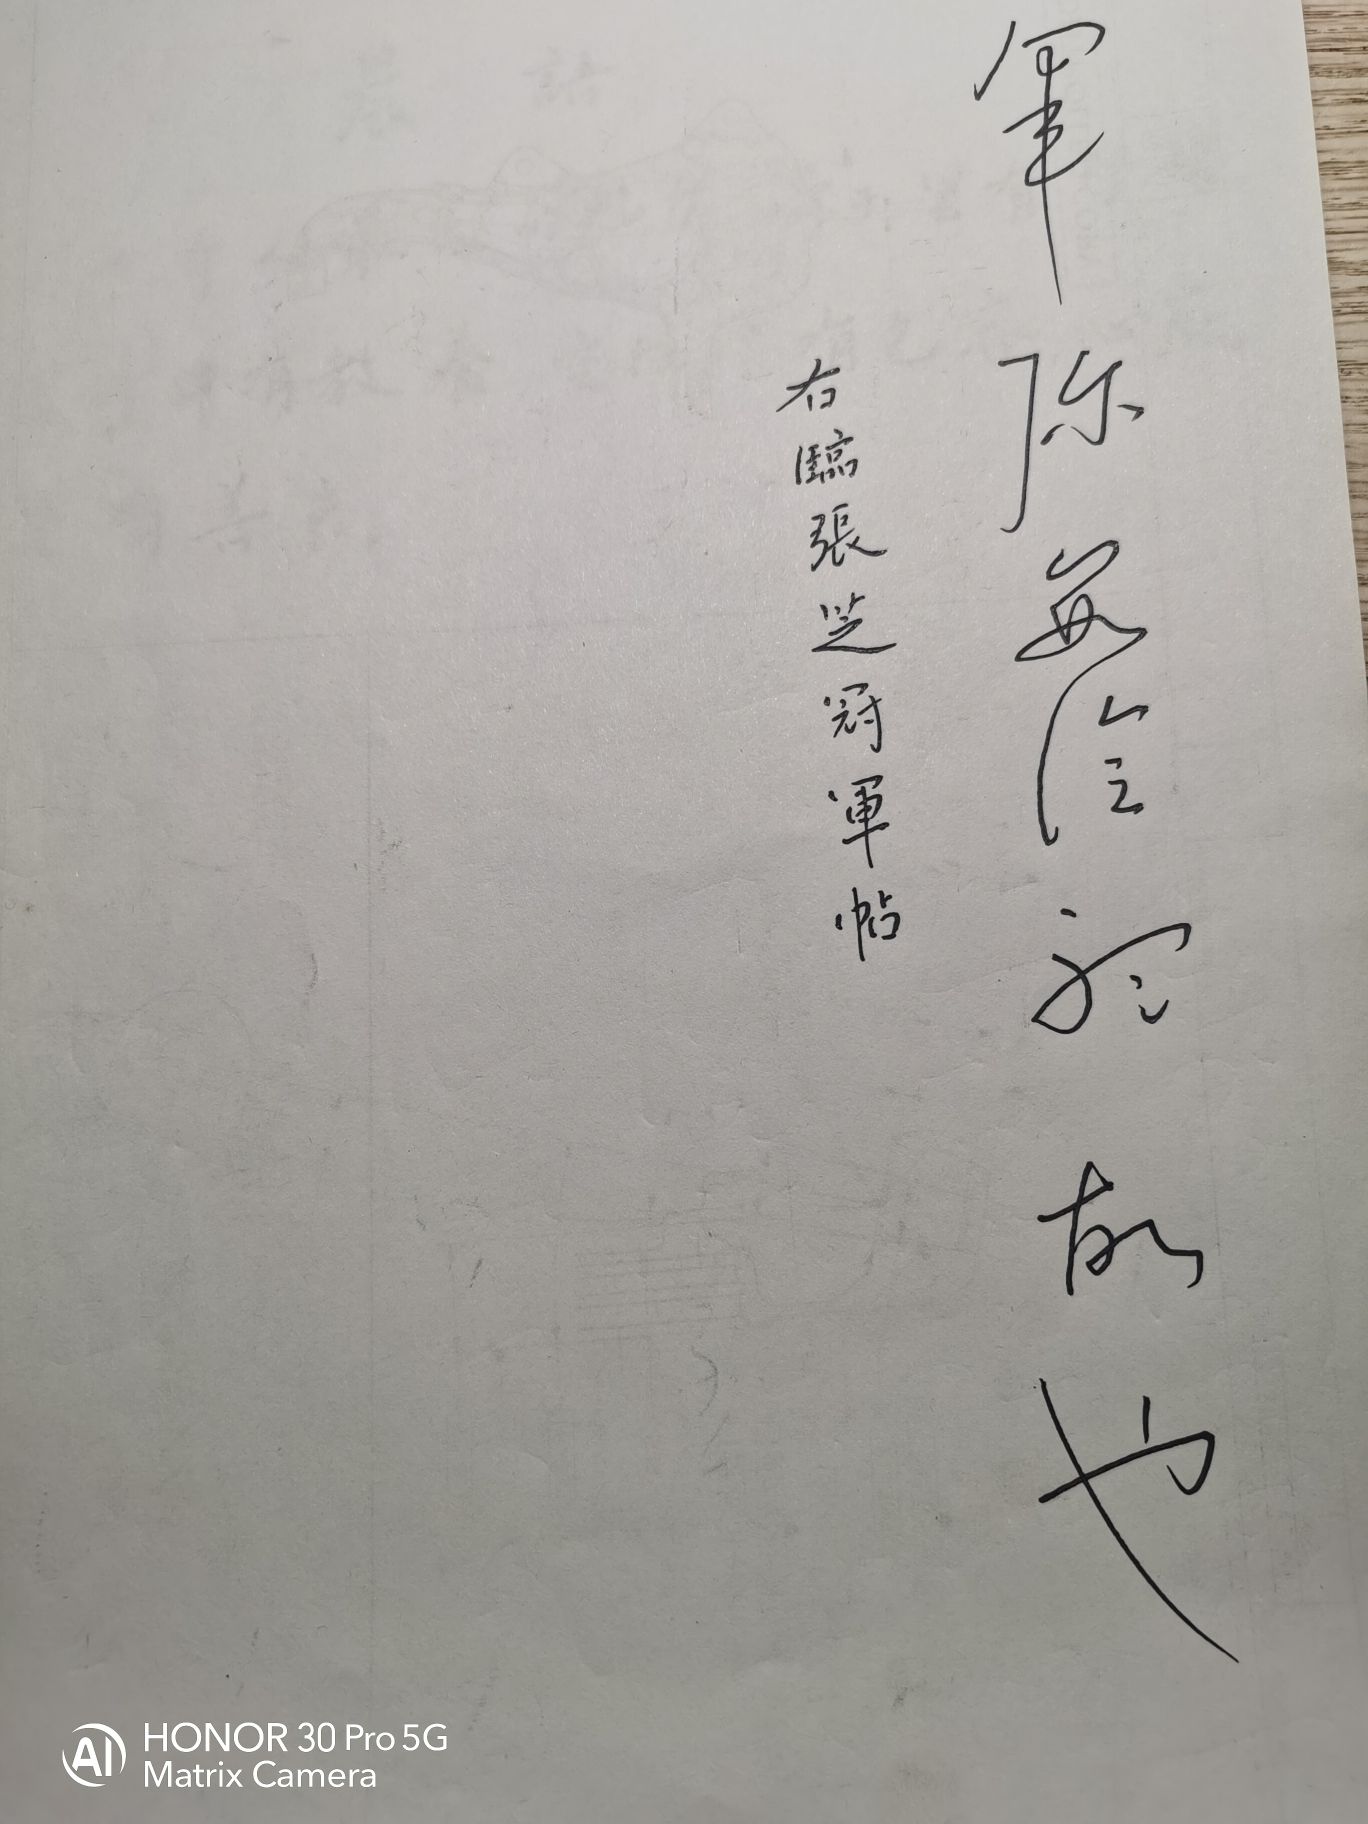 軍弥若論聽故也
右臨張芝冠軍帖
HONOR 30 Pro 5G
Matrix Camera
AI